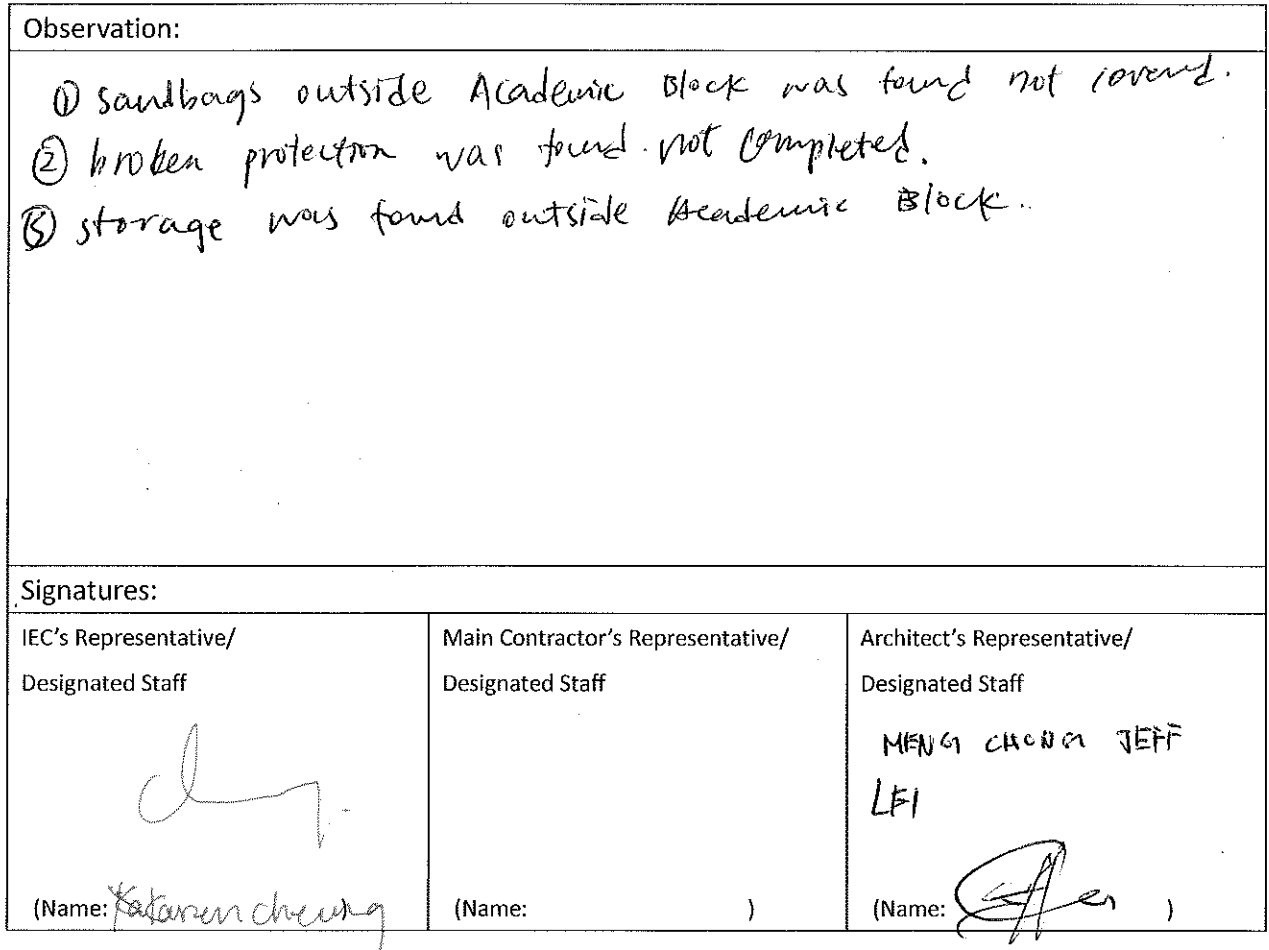 Observation:
① sandbags outside Academic Block was found not covered.
② broken protection was found not completed.
③ storage was found outside Academic Block.
Signatures:
IEC's Representative/
Designated Staff
Main Contractor's Representative/
Designated Staff
Architect's Representative/
Designated Staff
MENG CHONG JEFF
LEI
(Name: cheung )
(Name: )
(Name: )